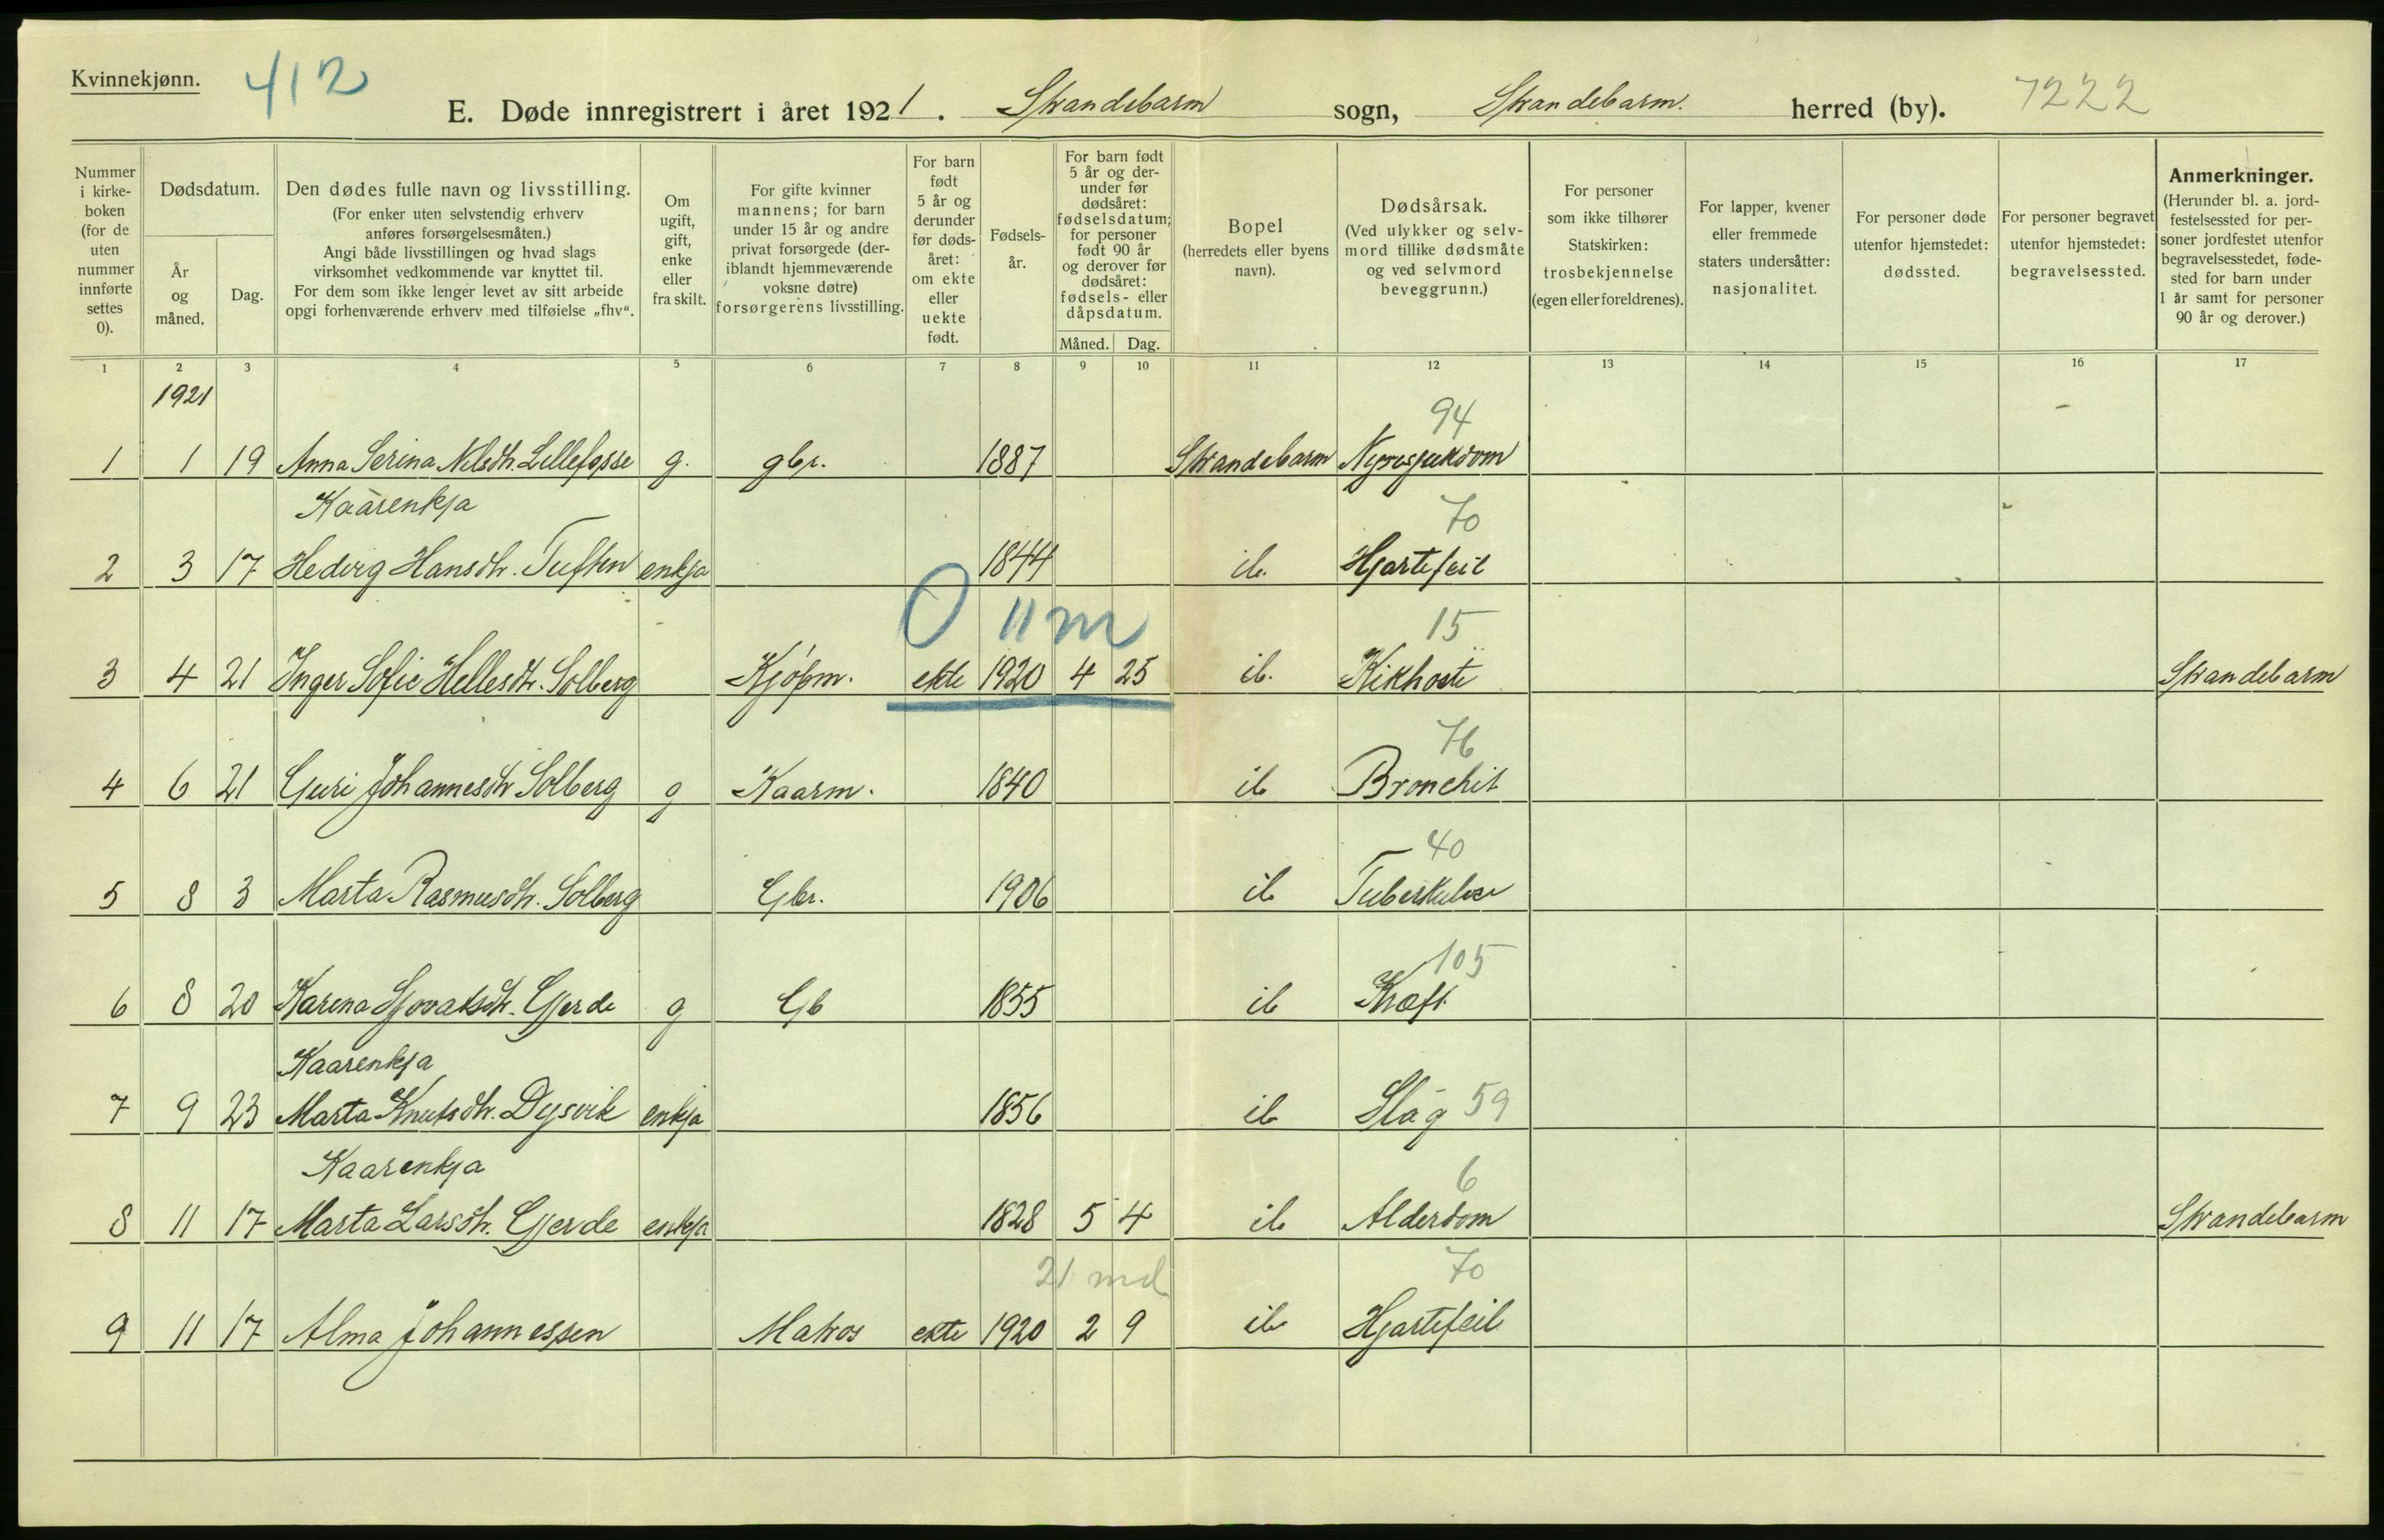 Kvinnekjønn.
412
E. Døde innregistrert i året 1921. Strandebarm sogn, Strandebarm. herred (by). 7222
Nummer i kirke-boken (for de uten nummer innførte settes 0).
Dødsdatum.
År og måned.
Dag.
Den dødes fulle navn og livsstilling.
(For enker uten selvstendig erhverv anføres forsørgelsesmåten.)
Angi både livsstillingen og hvad slags virksomhet vedkommende var knyttet til.
For dem som ikke lenger levet av sitt arbeide opgi forhenværende erhverv med tilføielse „fhv“.
Om ugift, gift, enke eller fraskilt.
For gifte kvinner mannens; for barn under 15 år og andre privat forsørgede (deriblandt hjemmeværende voksne døtre) forsørgerens livsstilling.
For barn født 5 år og derunder før døds-året: om ekte eller uekte født.
Fødsels-år.
For barn født 5 år og der-under før dødsåret: fødselsdatum; for personer født 90 år og derover før dødsåret: fødsels- eller dåpsdatum.
Måned. Dag.
Bopel (herredets eller byens navn).
Dødsårsak.
(Ved ulykker og selv-mord tillike dødsmåte og ved selvmord beveggrunn.)
For personer som ikke tilhører Statskirken: trosbekjennelse (egen eller foreldrenes).
For lapper, kvener eller fremmede staters undersåtter: nasjonalitet.
For personer døde utenfor hjemstedet: dødssted.
For personer begravet utenfor hjemstedet: begravelsessted.
Anmerkninger.
(Herunder bl. a. jord-festelsessted for per-soner jordfestet utenfor begravelsesstedet, føde-sted for barn under 1 år samt for personer 90 år og derover.)
1 2 3 4 5 6 7 8 9 10 11 12 13 14 15 16 17
1921
94
1 1 19 Anna Serina Nilsdtr. Lillefosse g. gbr. 1887 Strandebarm Nyresjukdom
Kaarenkja
70
2 3 17 Hedvig Hansdtr. Tuften enkja 1844 ib. Hjartefeil
0 11 m
15
3 4 21 Inger Sofie Hellesdtr. Solberg Kjøpm. ekte 1920 4 25 ib. Kikhoste Strandebarm
76
4 6 21 Guri Johannesdtr Solberg g Kaarm. 1840 ib Bronchit
40
5 8 3 Marta Rasmusdtr. Solberg Gbr. 1906 ib Tuberkulose
105
6 8 20 Karina Sjovatsdtr. Gjerde g Gb 1855 ib Kræft
Kaarenkja
7 9 23 Marta Knutsdtr. Dysvik enkja 1856 ib Slag 59
Kaarenkja
6
8 11 17 Marta Larsdtr. Gjerde enkja 1828 5 4 ib Alderdom Strandebarm
21 md
70
9 11 17 Alma Johannessen Matros ekte 1920 2 9 ib Hjartefeil